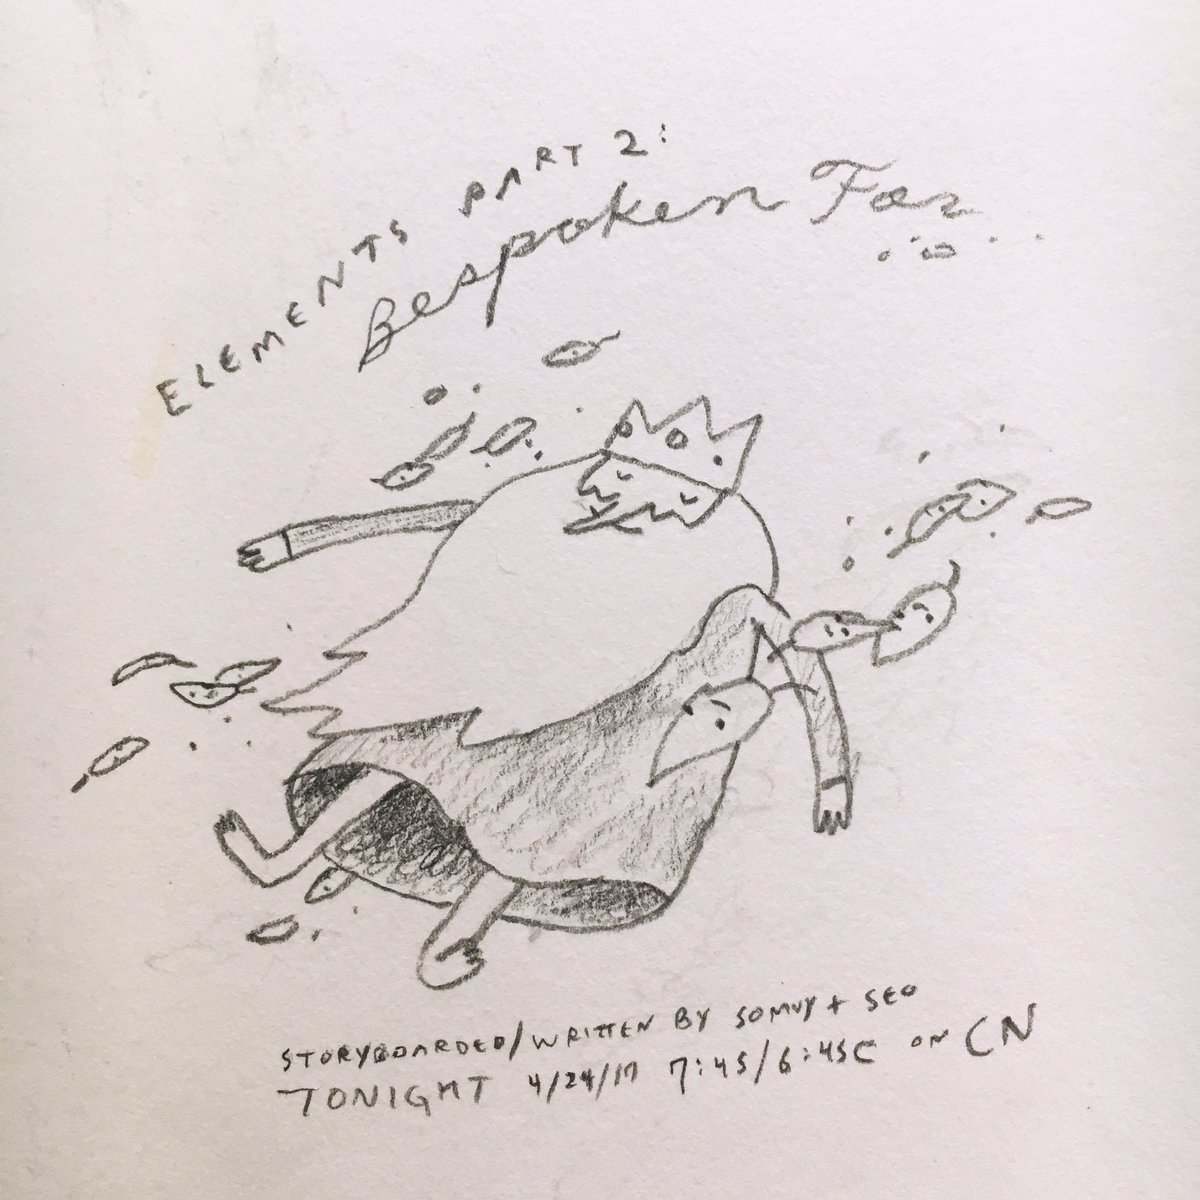 ELEMENTS PART 2:
Bespoken For
STORYBOARDED/WRITTEN BY SOMVY + SEO
TONIGHT 4/24/17 7:45/6:45C ON CN